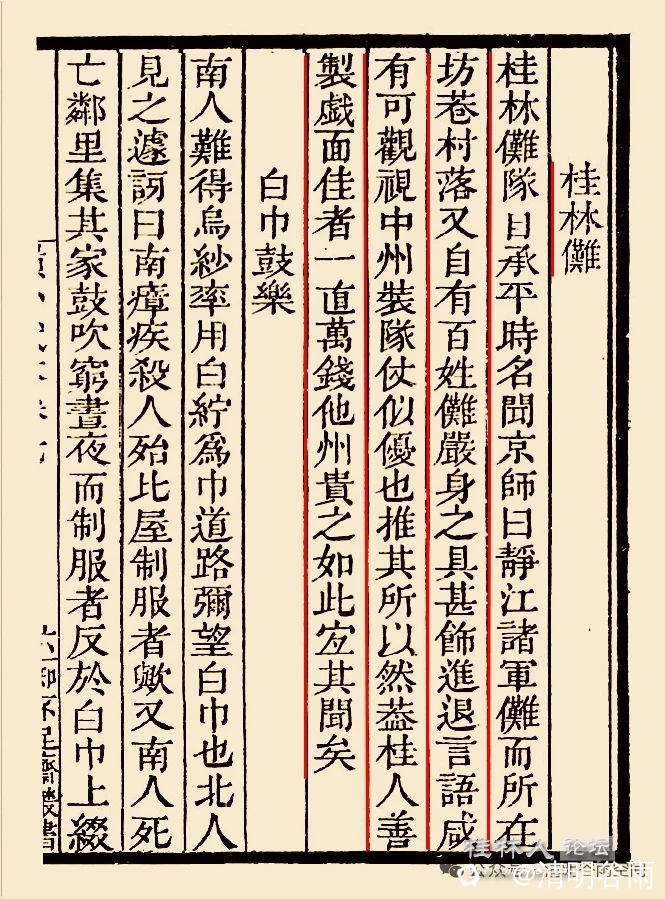 桂林儺
桂林儺隊自承平時名聞京師曰靜江諸軍儺而所在
坊巷村落又自有百姓儺嚴身之具甚飾進退言語咸
有可觀視中州裝隊仗似優也推其所以然葢桂人善
製戲面佳者一直萬錢他州貴之如此宐其聞矣
白巾鼓樂
南人難得烏紗率用白紵爲巾道路彌望白巾也北人
見之遽訝曰南瘴疾殺人殆比屋制服者歟又南人死
亡鄰里集其家鼓吹窮晝夜而制服者反於白巾上綴
知不足齋叢書
桂林人论坛
公众号
@清明谷雨